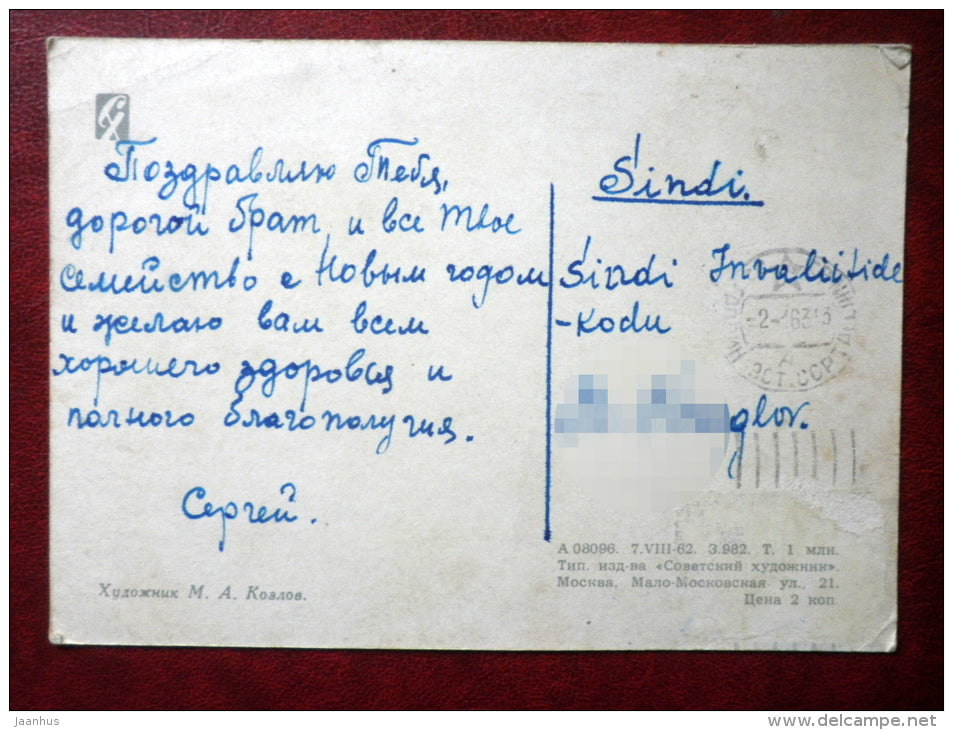 Поздравляю Тебя,
дорогой брат, и все твое
семейство с Новым годом
и желаю вам всем
хорошего здоровья и
полного благополучия.
Сергей.
Художник М. А. Козлов.
Sindi.
Sindi Invaliitide
-kodu
glov.
ЭСТ. ССР
А 08096. 7.VIII-62. З.982. Т. 1 млн.
Тип. изд-ва «Советский художник».
Москва, Мало-Московская ул., 21.
Цена 2 коп.
jaanhus
http://www.delcampe.net